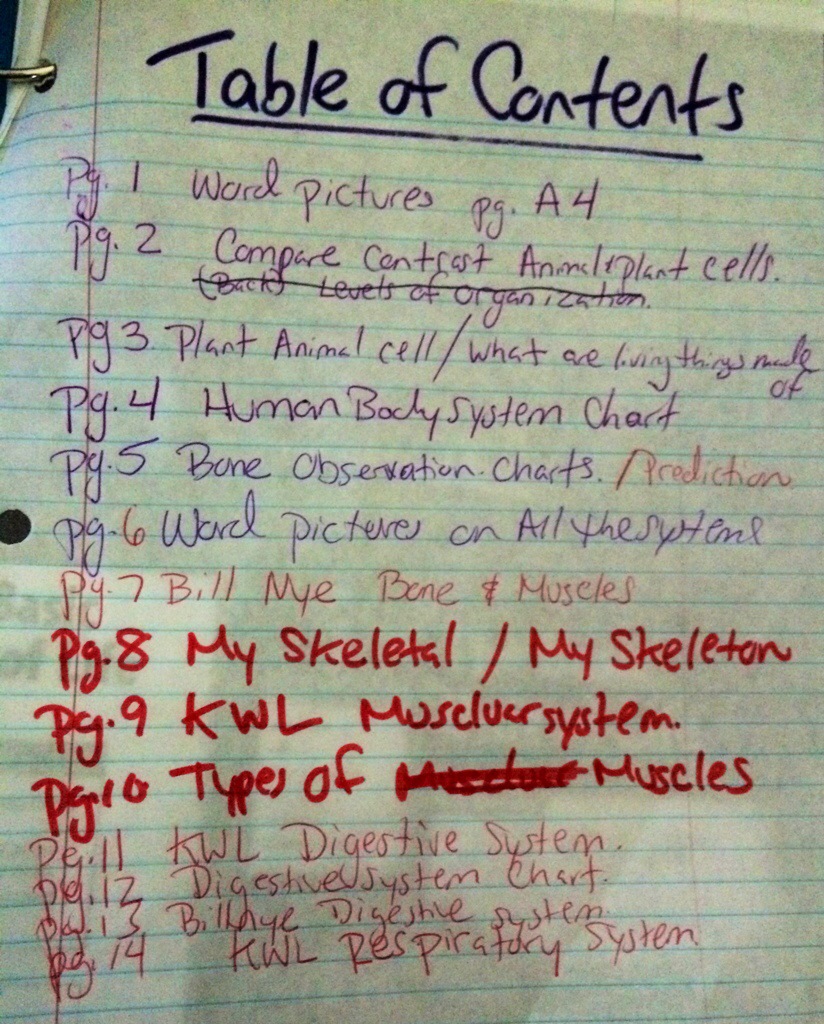 Table of Contents
Pg. 1 Word pictures pg. A4
Pg. 2 Compare Contrast Animal & plant cells.
(Back) Levels of organization.
Pg 3. Plant Animal cell / What are living things made of
Pg. 4 Human Body System Chart
Pg. 5 Bone Observation Charts. / Prediction
pg. 6 Word pictures on All the systems
Pg. 7 Bill Nye Bone & Muscles
Pg. 8 My Skeletal / My Skeleton
Pg. 9 KWL Muscluar system.
Pg. 10 Types of Muscles
Pg. 11 KWL Digestive System.
Pg. 12 Digestive system Chart.
Pg. 13 Bill Nye Digestive system.
pg. 14 KWL Respiratory System